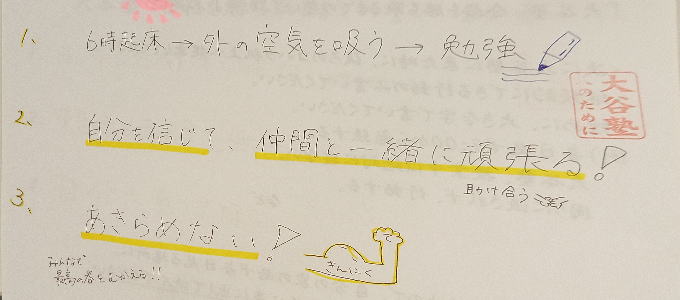 1、 6時起床→外の空気を吸う→勉強
大谷塾
このために
2、 自分を信じて、仲間と一緒に頑張る!
助け合う
3、 あきらめない!
きんにく
みんなで
最高の春をむかえる!!